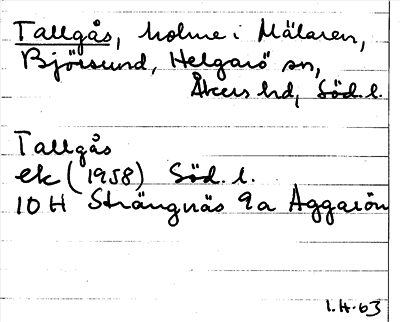 Tallgås, holme i Mälaren,
Björsund, Helgarö sn,
Åkers hd, Söd. l.
Tallgås
ek (1958) Söd. l.
10 H Strängnäs 9a Aggarön
1.H.63